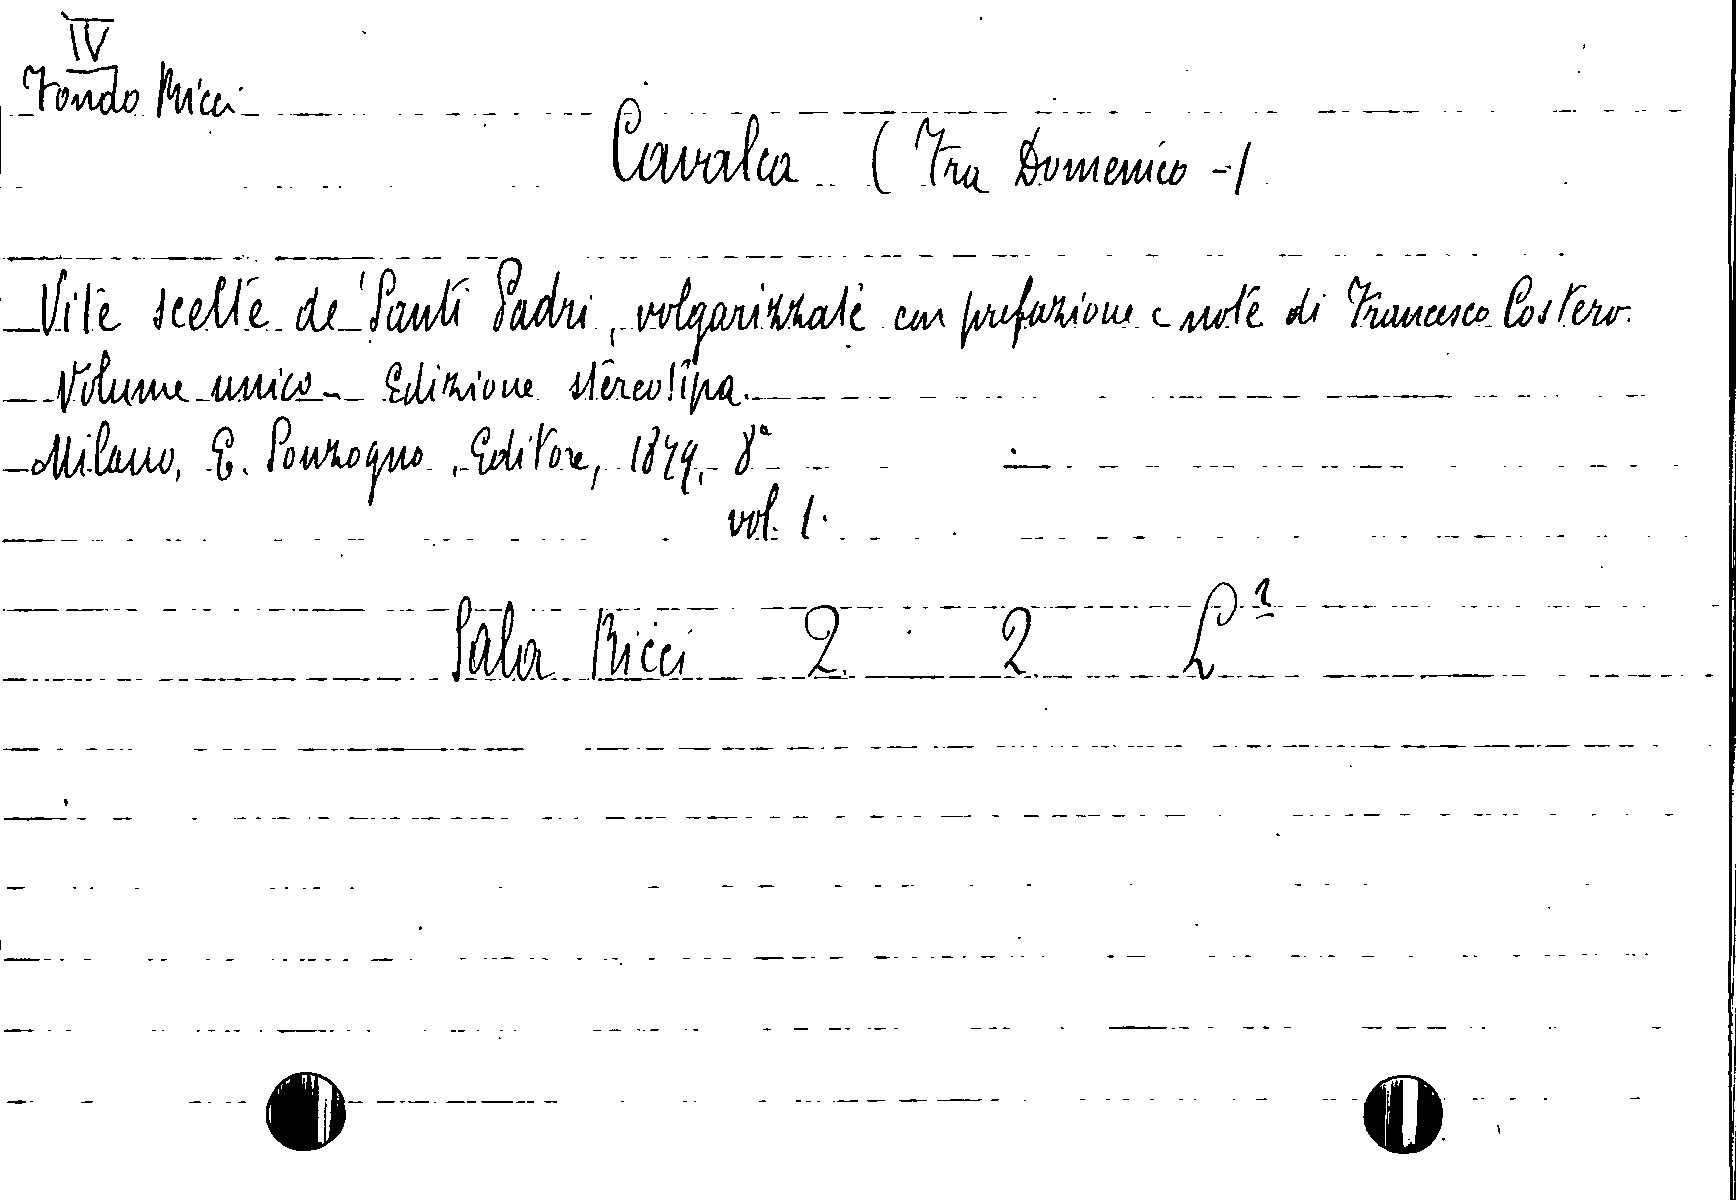 IV
Fondo Ricci
Cavalca (Fra Domenico -)
Vite scelte de' Santi Padri, volgarizzate con prefazione e note di Francesco Costero.
Volume unico - Edizione stereotipa.
Milano, E. Sonzogno, Editore, 1879, 8°
vol. 1.
Sala Ricci 2. 2